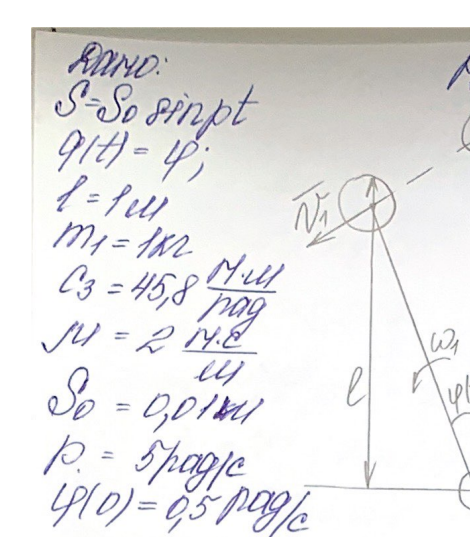 Дано:
S=S₀ sinpt
q(t) = φ;
l = 1м
m₁ = 1кг
C₃ = 45,8 Н·м/рад
μ = 2 Н·с/м
S₀ = 0,01м
p. = 5рад/с
φ(0) = 0,5 рад/с
V̅₁
ω₁
l
φ(